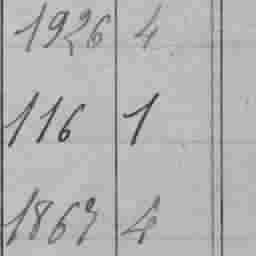 1926 4
116 1
1867 4